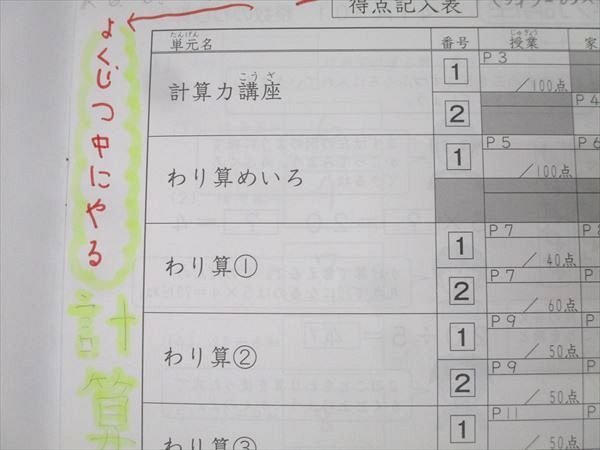 得点記入表
よくじつ中にやる
計算
単元名
たんげん
番号
授業
じゅぎょう
家
計算力講座
こうざ
1
P3
／100点
2
P4
わり算めいろ
1
P5
／100点
P6
わり算①
1
P7
／40点
2
P7
／60点
わり算②
1
P9
／50点
2
P9
／50点
わり算③
1
P11
／50点